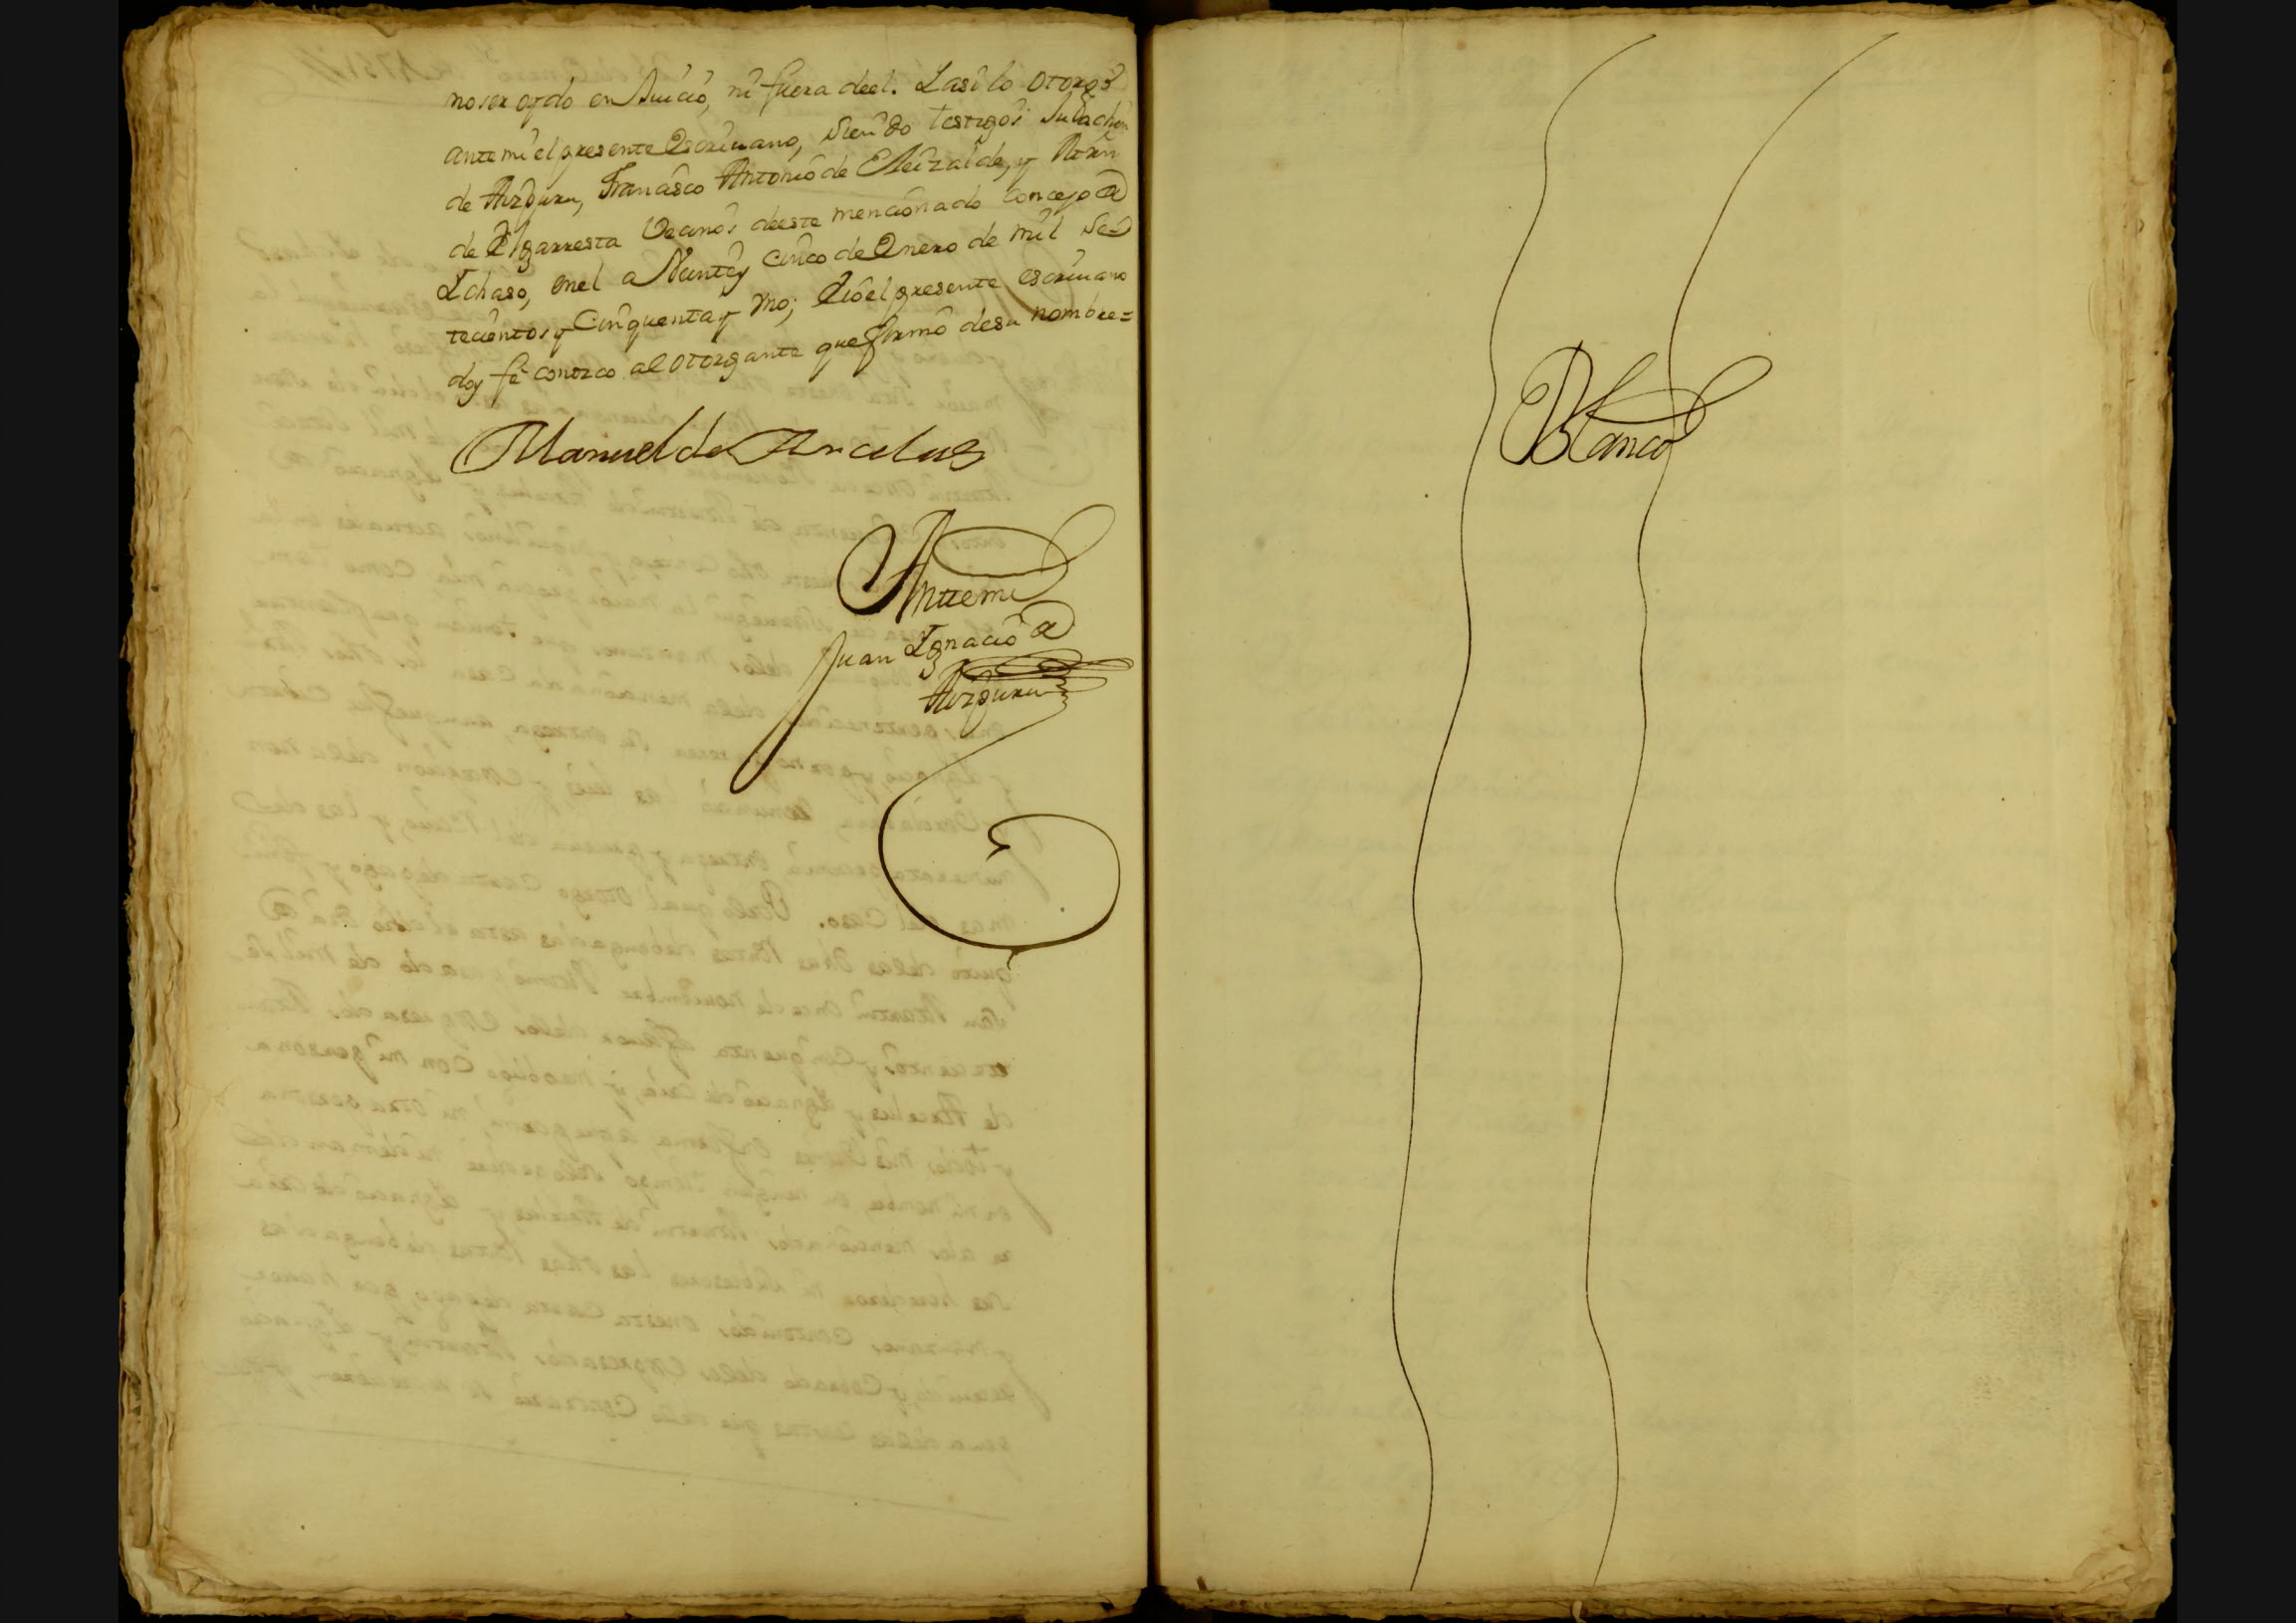 no ser oydo en Juicio, ni fuera de el. Y asi lo otorgó
ante mi el presente Escriuano, siendo testigos
de Aizpuru, Francisco Antonio de Eleizalde, y
de Elgarresta Vecinos de este mencionado concejo de
Ichaso, en el a Veinte y cinco de Enero de mil Se=
tecientos y Cinquenta y Vno; E io el presente escriuano
doy fe conozco al otorgante que firmó de su nombre=
Manuel de Arcelus
Ante mi
Juan Ignacio de
Aizpuru
Blanco